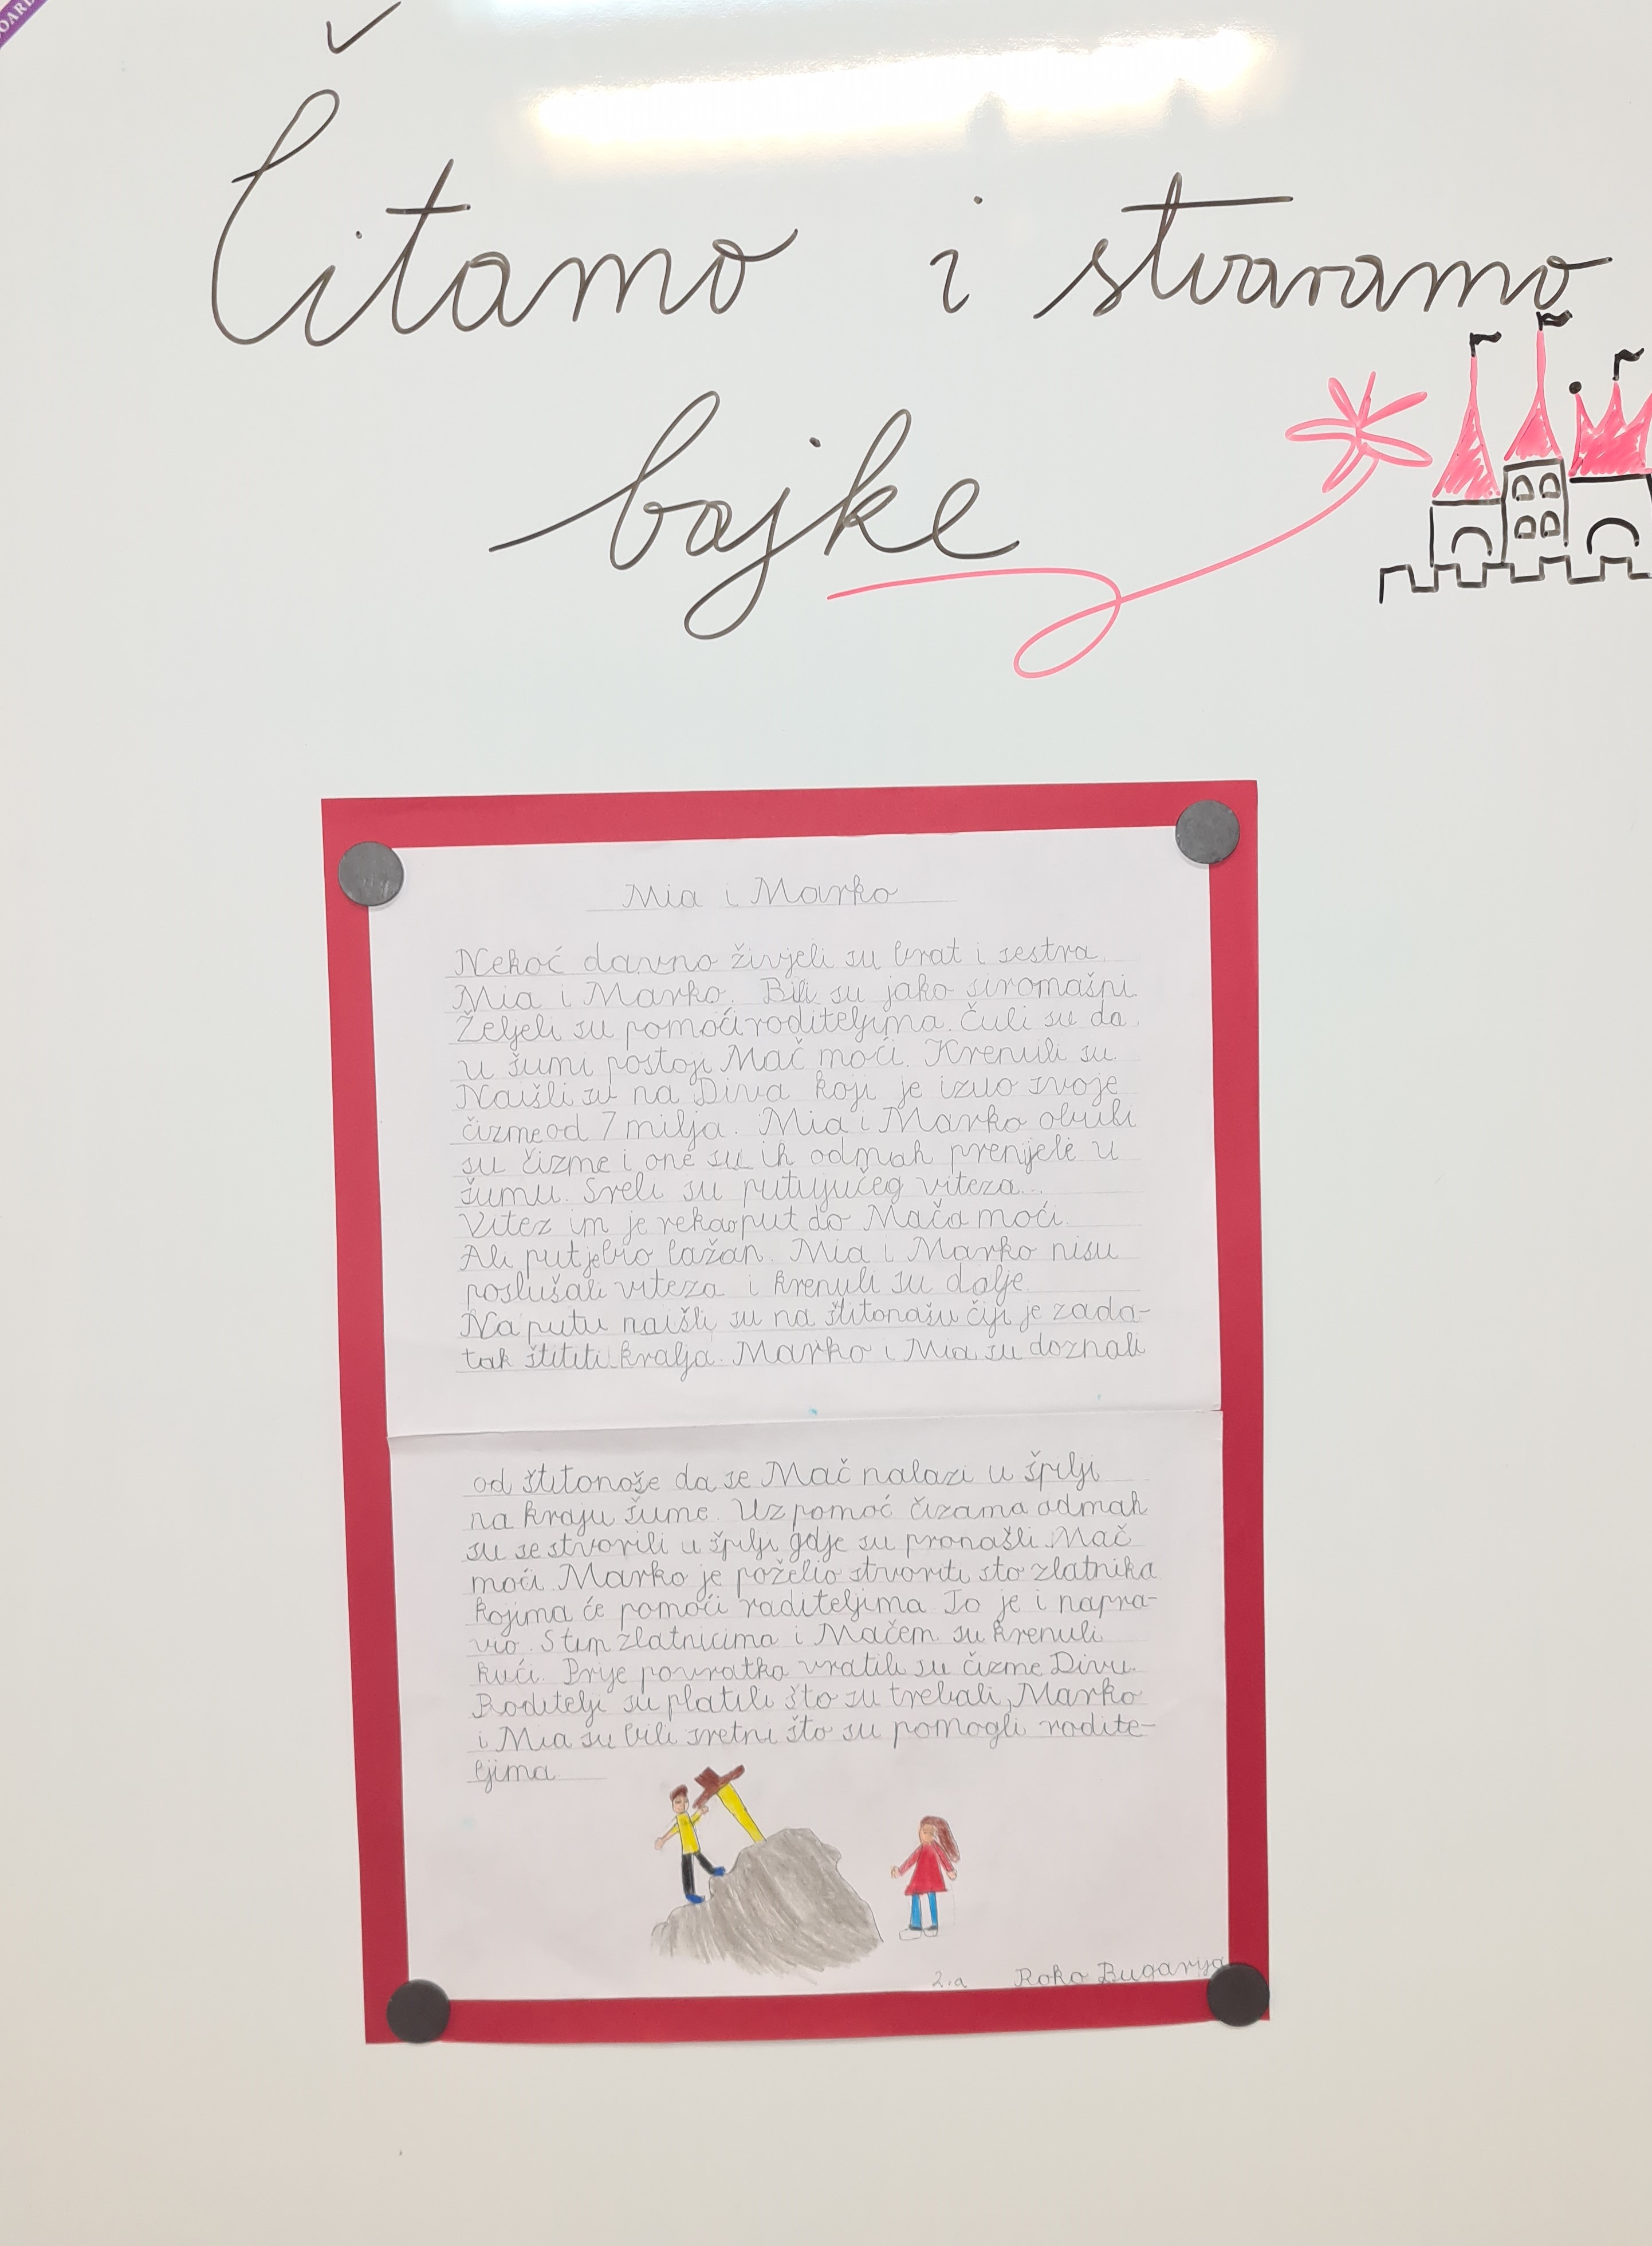 OARD
Čitamo i stvaramo
bajke
Mia i Marko
Nekoć davno živjeli su brat i sestra
Mia i Marko. Bili su jako siromašni
Željeli su pomoći roditeljima. Čuli su da
u šumi postoji Mač moći. Krenuli su.
Naišli su na Diva koji je izuo svoje
čizme od 7 milja. Mia i Marko obuli
su čizme i one su ih odmah prenijele u
šumu. Sreli su putujućeg viteza...
Vitez im je rekao put do Mača moći.
Ali put je bio lažan. Mia i Marko nisu
poslušali viteza i krenuli su dalje.
Na putu naišli su na štitonošu čiji je zada-
tak štititi kralja. Marko i Mia su doznali
od štitonoše da se Mač nalazi u špilji
na kraju šume. Uz pomoć čizama odmah
su se stvorili u špilji gdje su pronašli Mač
moći. Marko je poželio stvoriti sto zlatnika
kojima će pomoći raditeljima. To je i napra-
vio. S tim zlatnicima i Mačem su krenuli
kući. Prije povratka vratili su čizme Divu.
Roditelji su platili što su trebali, Marko
i Mia su bili sretni što su pomogli rodite-
ljima
2.a Roko Bugarija